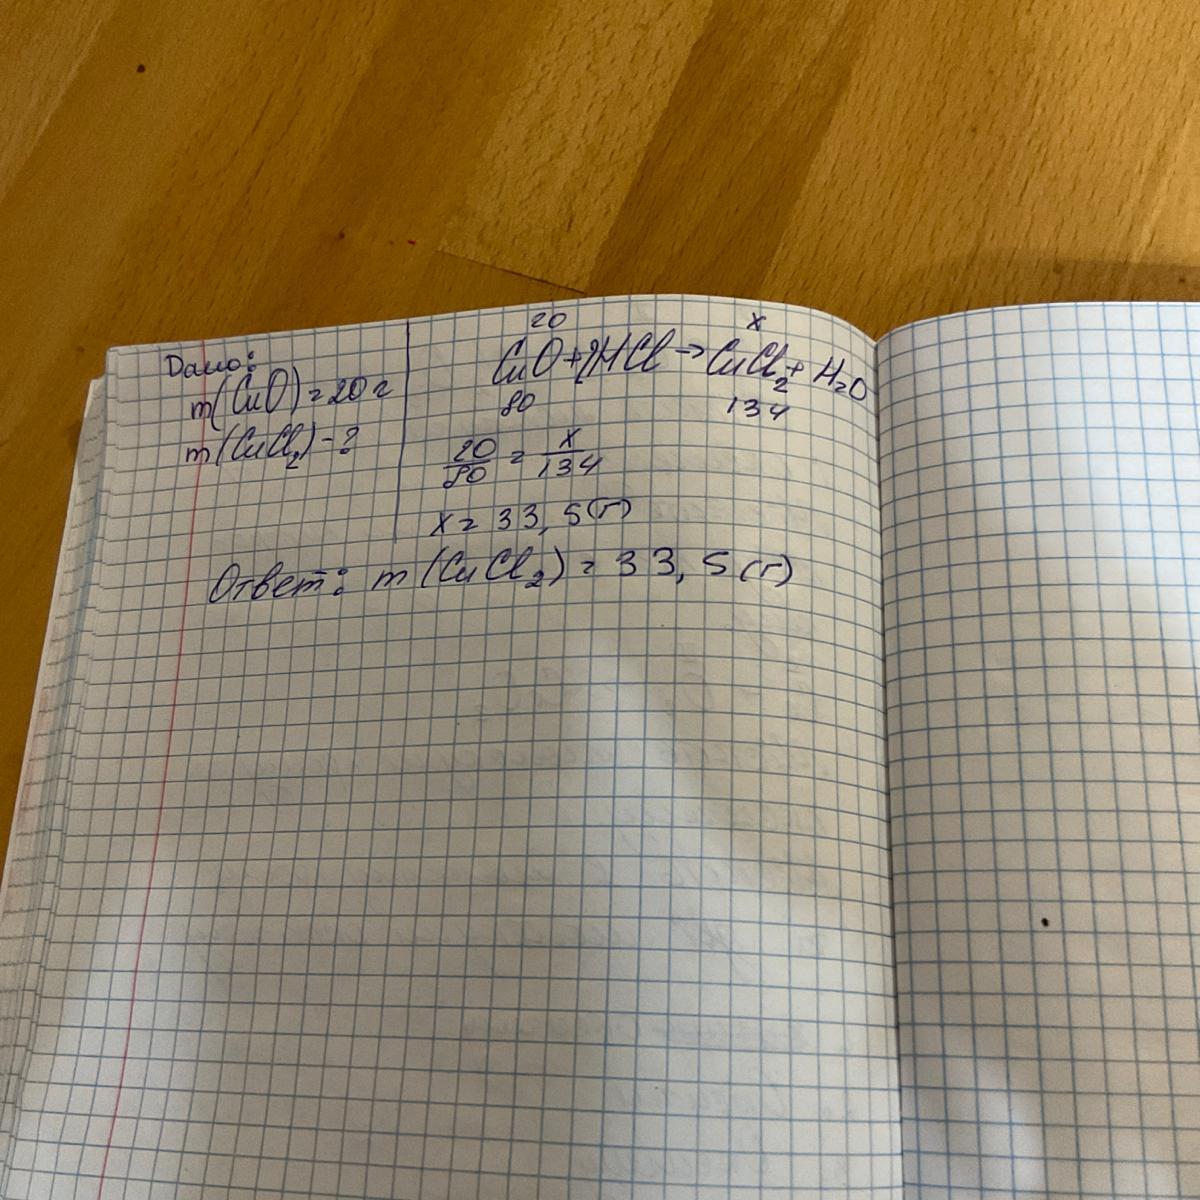 Дано:
m(CuO)=20 г
m(CuCl₂)-?
20 x
CuO+2HCl→CuCl₂+H₂O
80 134
20/80 = x/134
x=33,5(г)
Ответ: m(CuCl₂)=33,5(г)